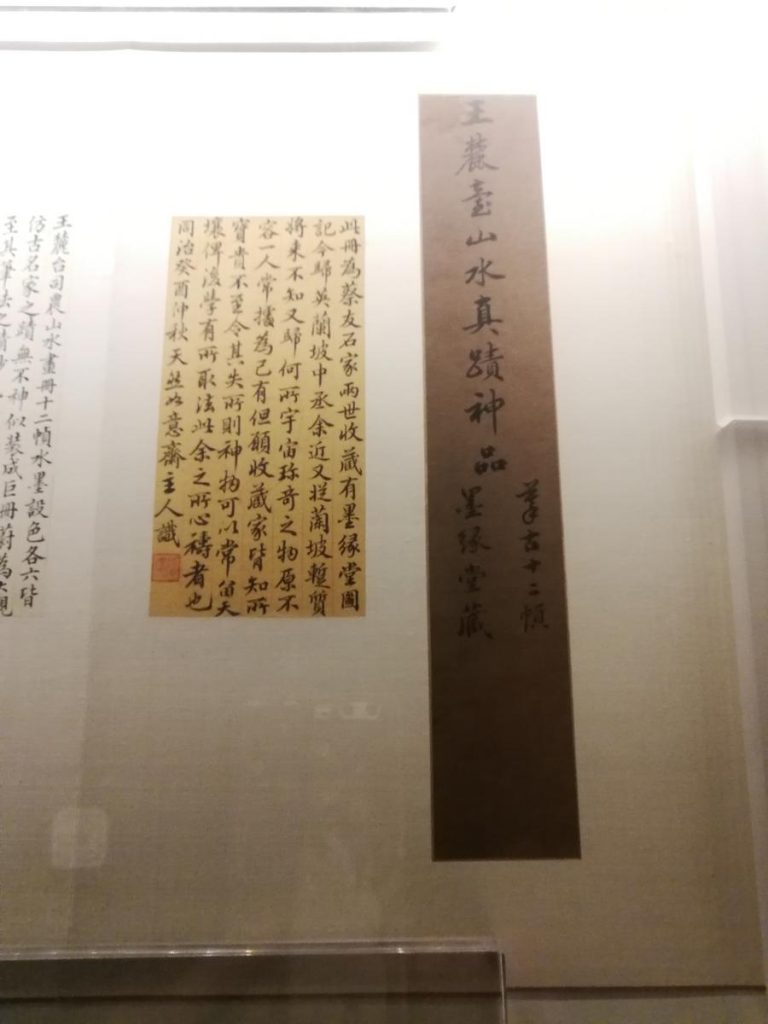 王麓臺山水真蹟神品
摹古十二幀
墨緣堂藏
此冊為蔡友石家兩世收藏有墨緣堂圖
記今歸英蘭坡中丞余近又從蘭坡暫質
將來不知又歸何所宇宙珍奇之物原不
容一人常擅為己有但願收藏家皆知所
寶貴不至令其失所則神物可以常留天
壤俾後學有所取法此余之所心禱者也
同治癸酉仲秋天然如意齋主人識
王麓台司農山水畫冊十二幀水墨設色各六皆
仿古名家之蹟無不神似裝成巨冊蔚為大觀
至其筆法之精妙